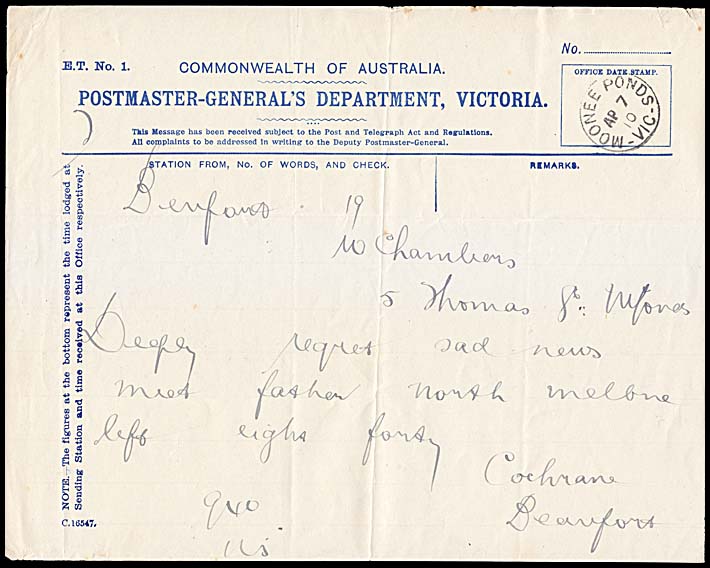 No.
E.T. No. 1.
COMMONWEALTH OF AUSTRALIA.
POSTMASTER-GENERAL'S DEPARTMENT, VICTORIA.
This Message has been received subject to the Post and Telegraph Act and Regulations.
All complaints to be addressed in writing to the Deputy Postmaster-General.
OFFICE DATE STAMP.
MOONEE PONDS - VIC -
AP 7
10
STATION FROM, No. OF WORDS, AND CHECK.
REMARKS.
Beaufort 19
W Chambers
5 Thomas St. MPonds
Deeply regret sad news
meet father north melbne
left eight forty
Cochrane
Beaufort
940
NOTE.—The figures at the bottom represent the time lodged at
Sending Station and time received at this Office respectively.
C.16547.